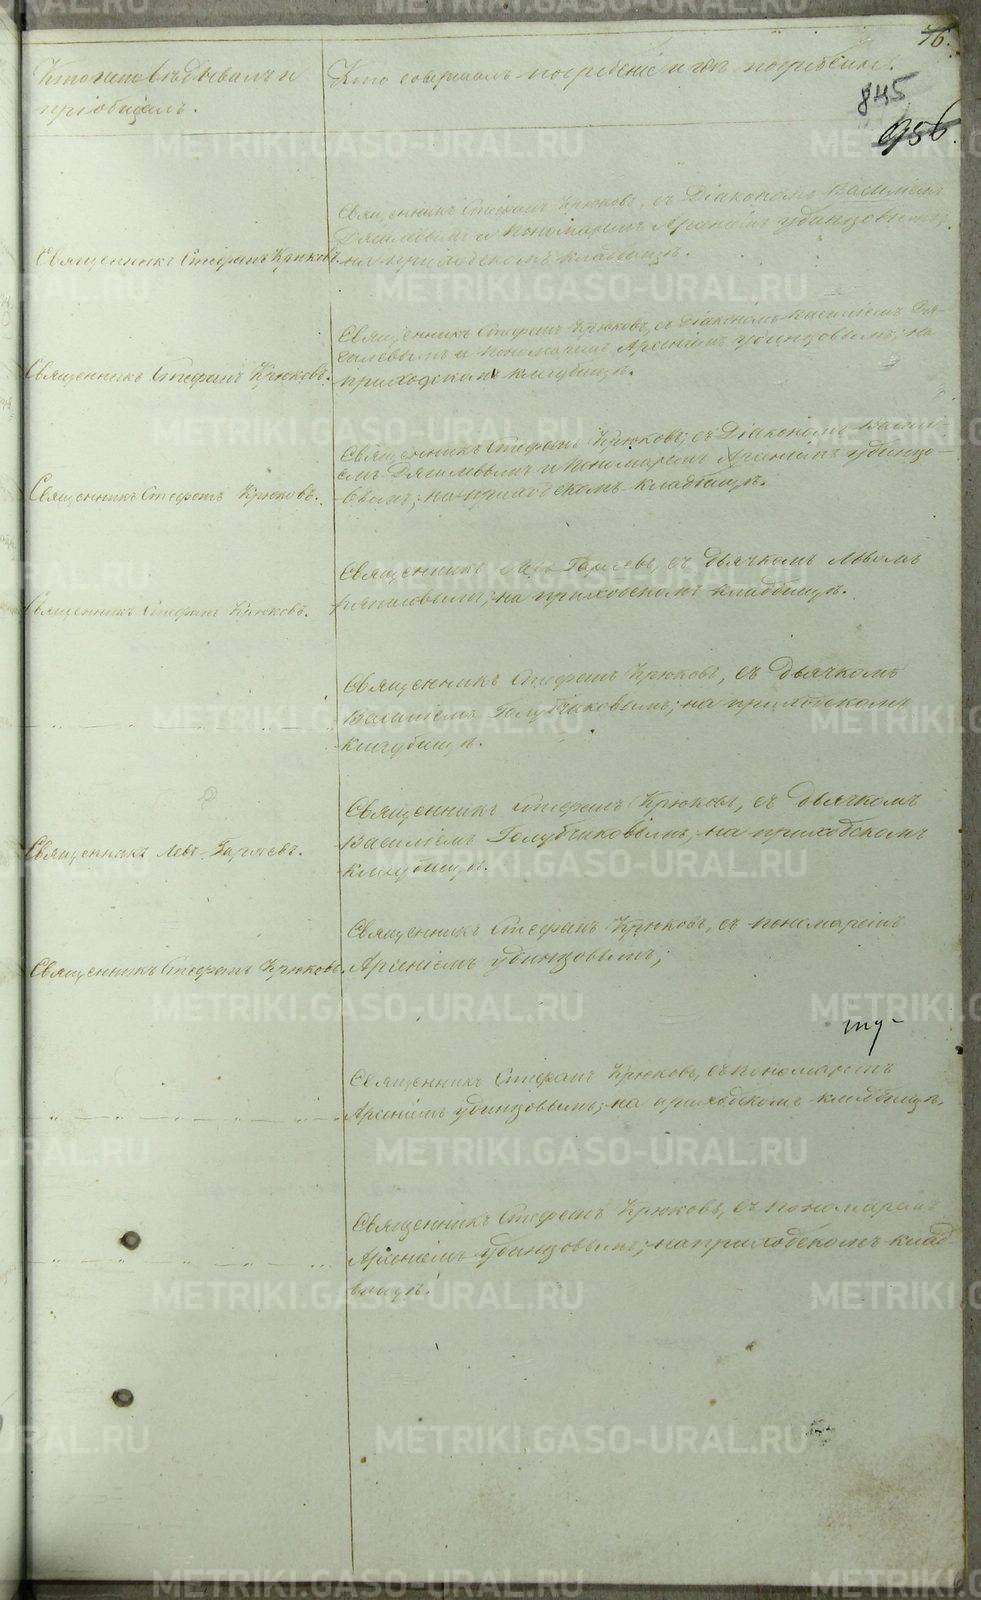 76.
845
956.
Кто исповѣдывалъ и
пріобщалъ.
Кто совершалъ погребеніе и гдѣ погребены.
Священникъ Стефанъ Крюковъ
Священникъ Стефанъ Крюковъ, съ Діакономъ Василіемъ
и Пономаремъ Арсеніемъ Удинцовымъ;
на приходскомъ кладбищѣ.
Священникъ Стефанъ Крюковъ.
Священникъ Стефанъ Крюковъ, съ Діакономъ Василіемъ
и Пономаремъ Арсеніемъ Удинцовымъ; на
приходскомъ кладбищѣ.
Священникъ Стефанъ Крюковъ.
Священникъ Стефанъ Крюковъ, съ Діакономъ Васил-
емъ и Пономаремъ Арсеніемъ Удинцо-
вымъ; на приходскомъ кладбищѣ.
Священникъ Стефанъ Крюковъ.
Священникъ Левъ Гаряевъ, съ Дьячкомъ Львомъ
на приходскомъ кладбищѣ.
Священникъ Стефанъ Крюковъ, съ Дьячкомъ
Василіемъ Голубчиковымъ; на приходскомъ
кладбищѣ.
Священникъ Левъ Гаряевъ.
Священникъ Стефанъ Крюковъ, съ Дьячкомъ
Василіемъ Голубчиковымъ, на приходскомъ
кладбищѣ.
Священникъ Стефанъ Крюковъ
Священникъ Стефанъ Крюковъ, съ пономаремъ
Арсеніемъ Удинцовымъ;
Священникъ Стефанъ Крюковъ, съ пономаремъ
Арсеніемъ Удинцовымъ; на приходскомъ кладбищѣ.
Священникъ Стефанъ Крюковъ, съ пономаремъ
Арсеніемъ Удинцовымъ; на приходскомъ клад
бищѣ.
METRIKI.GASO-URAL.RU